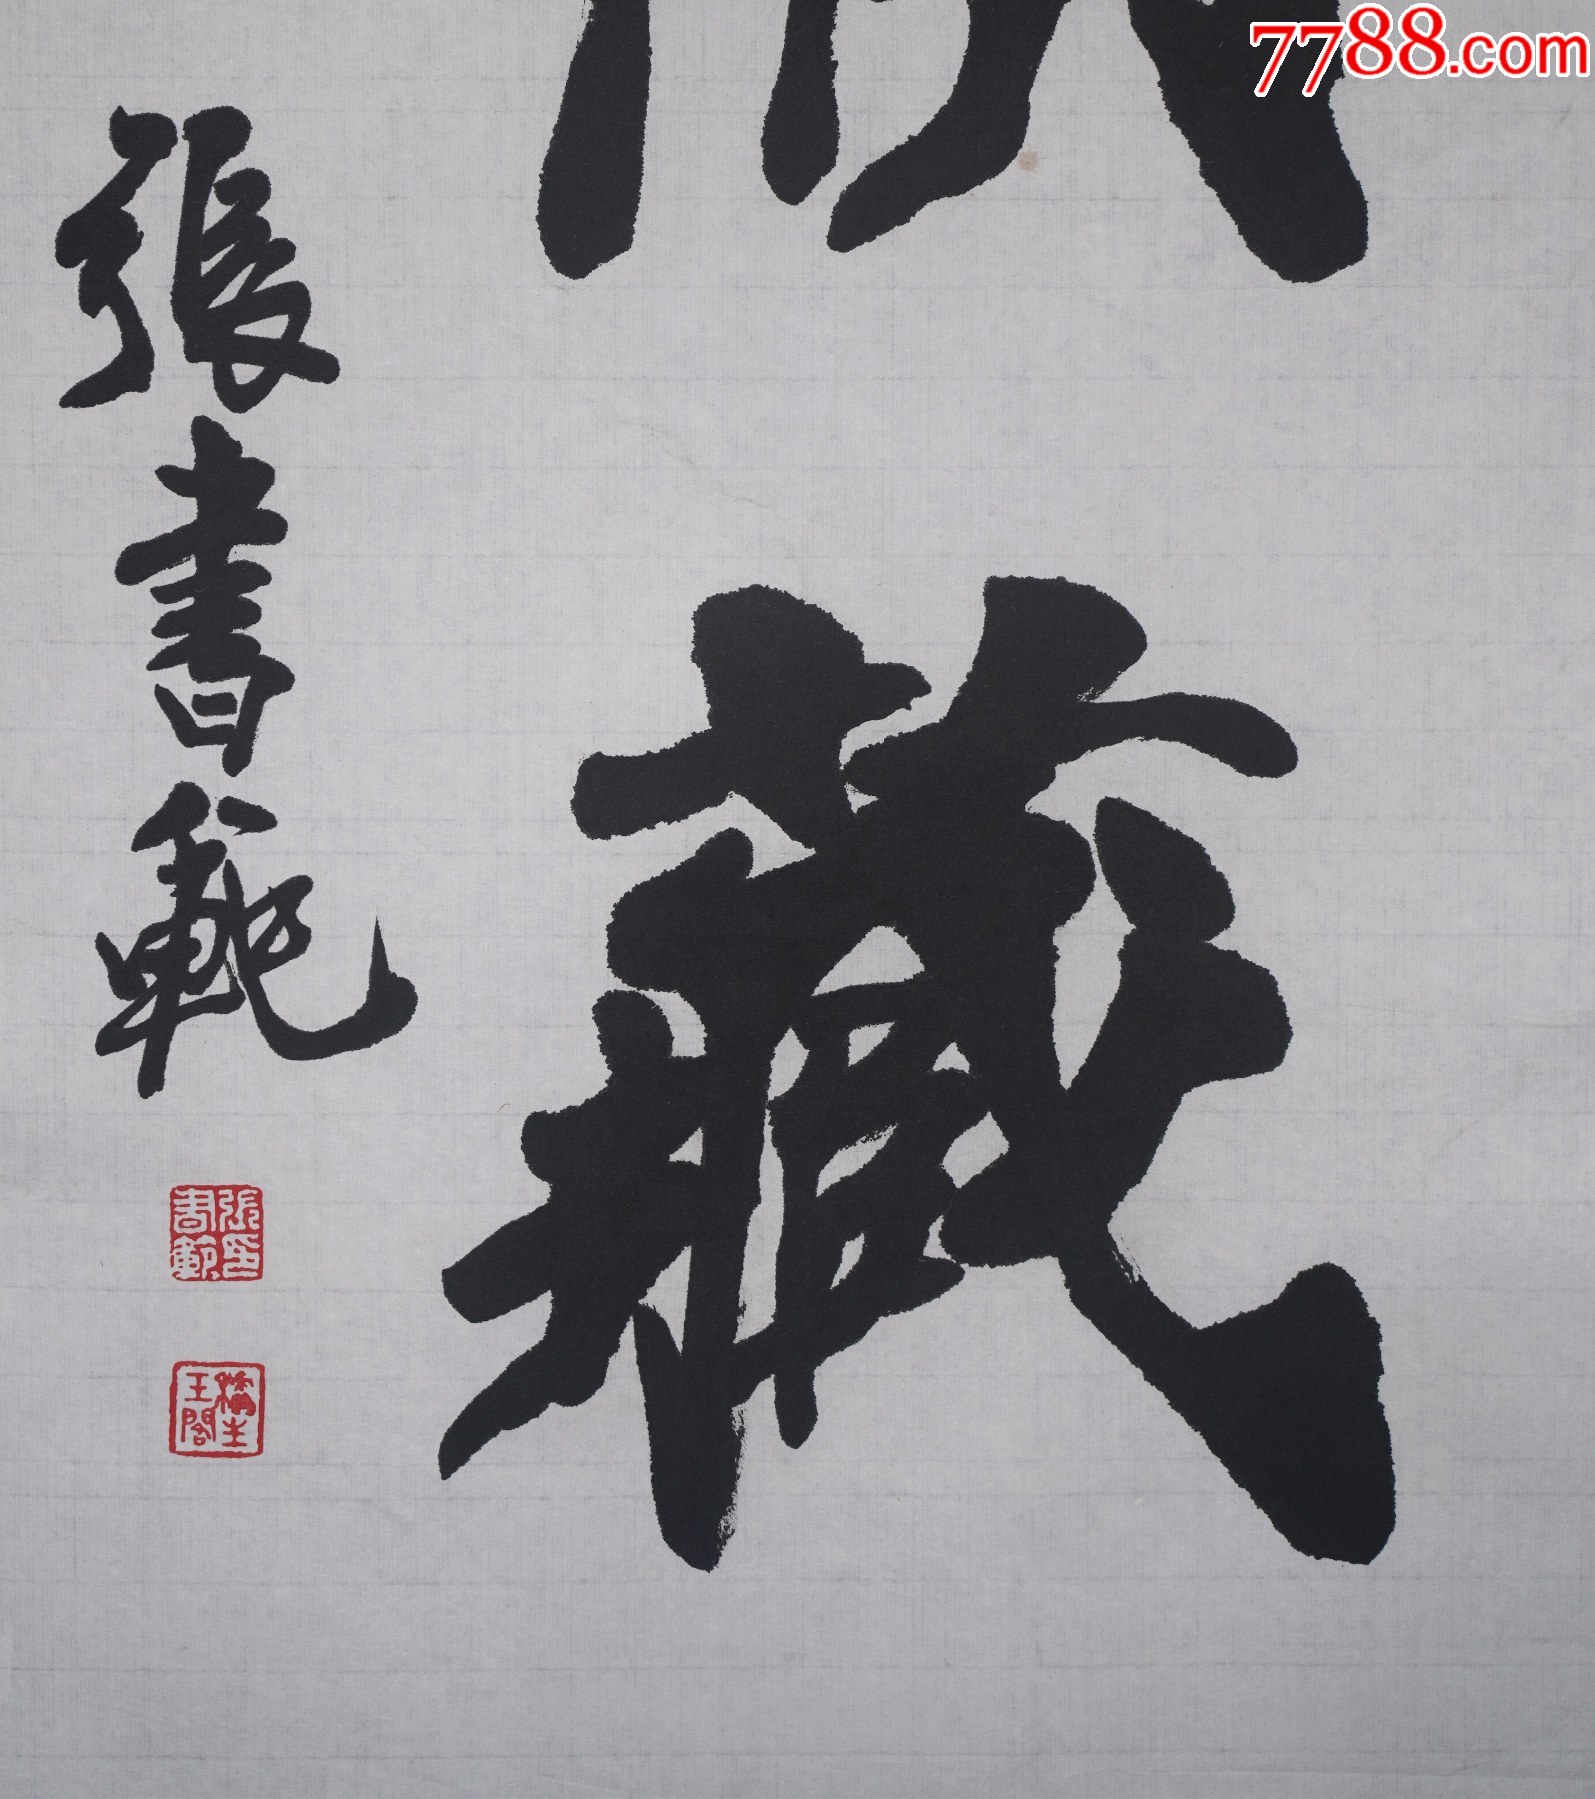 7788.com
藏
張書範
張書範印
王閣